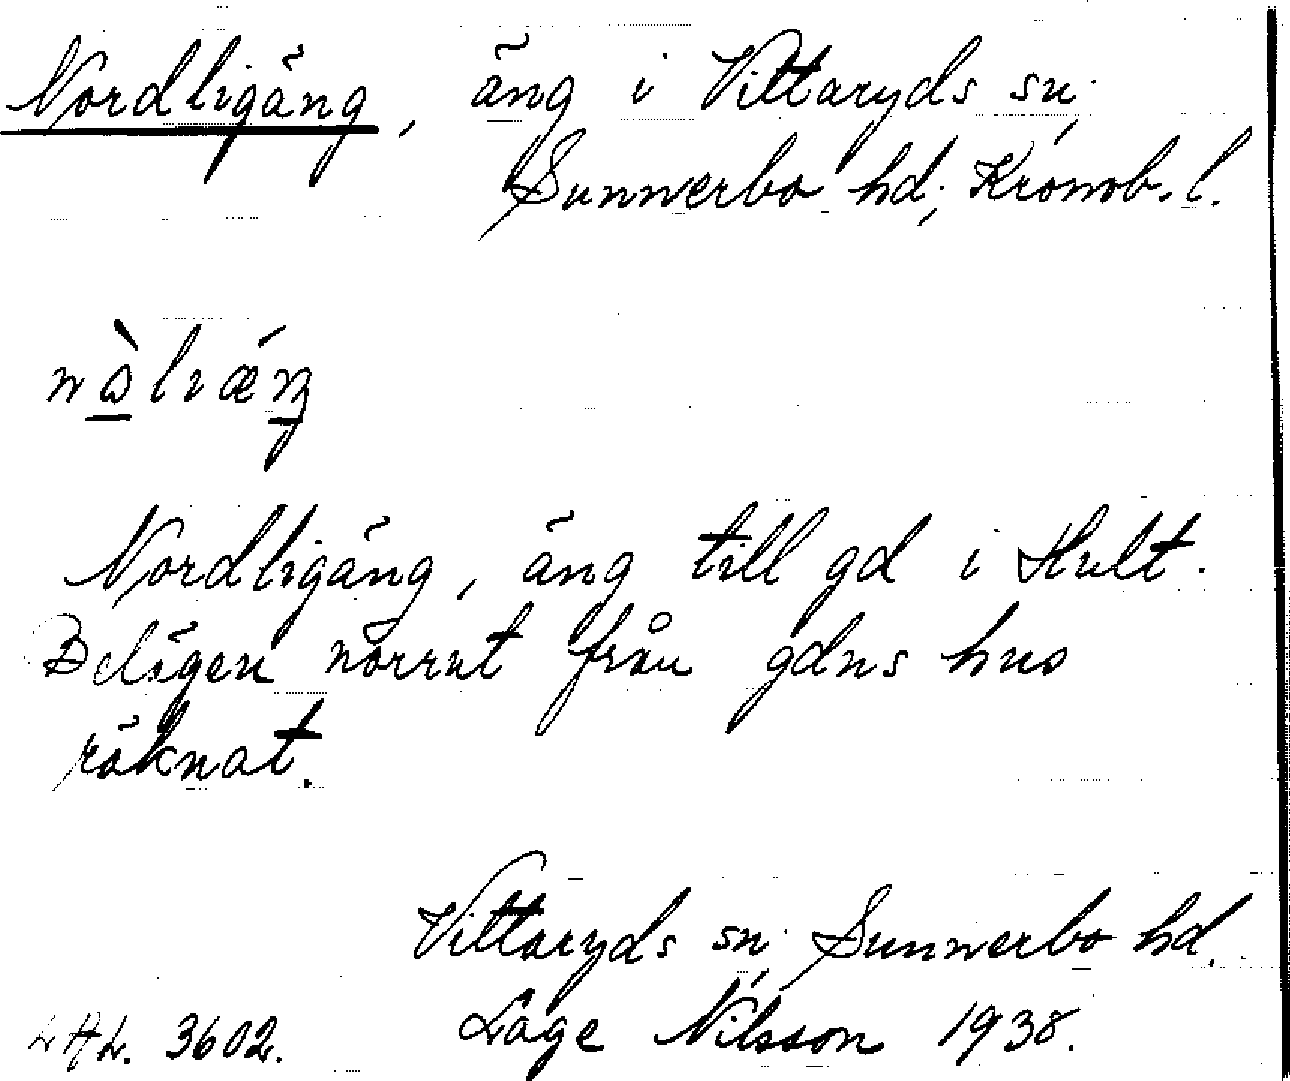 Nordligäng, äng i Vittaryds sn,
Sunnerbo hd, Kronob. l.
Nordligäng, äng till gd i Hult.
Belägen norrut från gdns hus
räknat.
Vittaryds sn, Sunnerbo hd.
LAL. 3602. Lage Nilsson 1938.